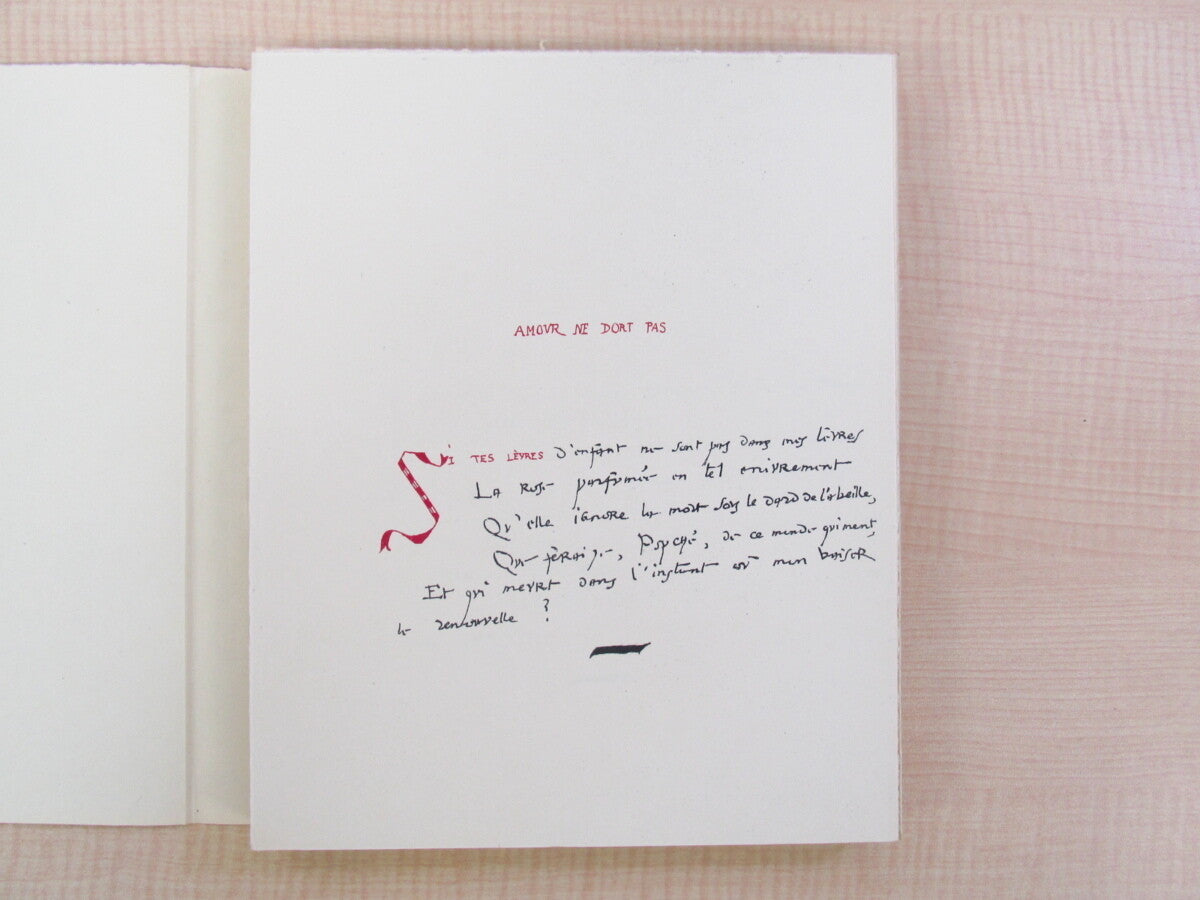 AMOVR NE DORT PAS
Si TES LÈVRES d'enfant ne sont pas dans mes lèvres
La rose parfumée en tel enivrement
Qu'elle ignore la mort sous le dard de l'abeille,
Que ferai-je, Psyché, de ce monde qui ment,
Et qui meurt dans l'instant où mon baiser
le renouvelle ?